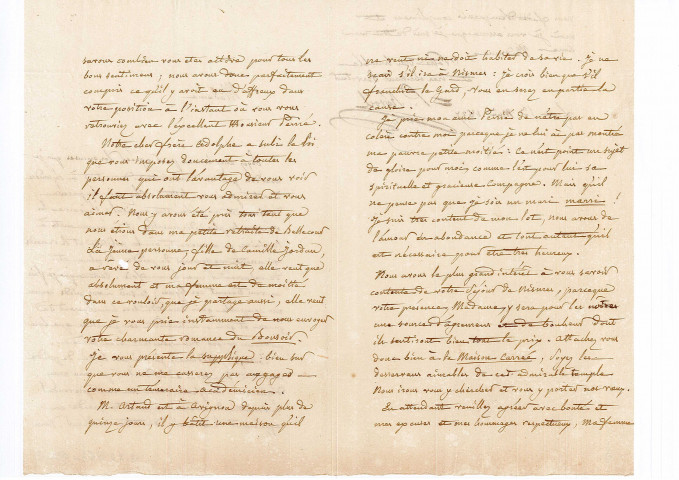 savons combien vous etes altéré pour tous les
bons sentimens ; nous avons donc parfaitement
compris ce qu'il y avoit eu d'affreux dans
votre position à l'instant où vous vous
retrouviez avec l'excellent Monsieur Périé.
Notre cher frère Adolphe a subi la loi
que vous imposez doucement à toutes les
personnes qui ont l'avantage de vous voir
il faut absolument vous admirer et vous
aimer. Nous y avons été pris tous tant que
nous étions dans ma petite retraite de Bellecour
La jeune personne, fille de Camille Jordan,
a rêvé de vous jour et nuit, elle veut que
absolument et ma femme est de moitié
dans ce vouloir que je partage aussi, elle veut
que je vous prie instamment de nous envoyer
votre charmante romance du Bonsoir.
Je vous présente la supplique : bien sûr
que vous ne me casserez pas
comme un téméraire académicien.
M. Artaud est à Avignon depuis plus de
quinze jours, il y bâtit une maison qu'il
ne veut ni ne doit habiter de sa vie. je ne
sçais s'il ira à Nismes : je crois bien que s'il
franchit le Gard, vous en serez en partie la
cause.
Je prie mon ami Périé de n'être pas en
colère contre moi parceque je ne lui ai pas montré
ma pauvre petite moitié : Ce n'est point un sujet
de gloire pour moi comme l'est pour lui sa
spirituelle et gracieuse Compagne. Mais qu'il
ne pense pas que je sois un mari marri !
Je suis très content de mon lot, nous avons de
l'amour en abondance et tout autant qu'il
est nécessaire pour être très heureux.
Nous avons le plus grand intérêt à vous savoir
contente de votre séjour de Nismes, parceque
votre présence, Madame, y sera pour les nôtres
une source d'agrément de bonheur dont
ils sentiront bien tout le prix. Attachez vous
donc bien à la Maison Carrée, soyez les
desservans aimables de cet admirable temple
Nous irons vous y chercher et vous y porter nos vœux.
En attendant veuillez agréer avec bonté et
mes excuses et mes hommages respectueux, Madame